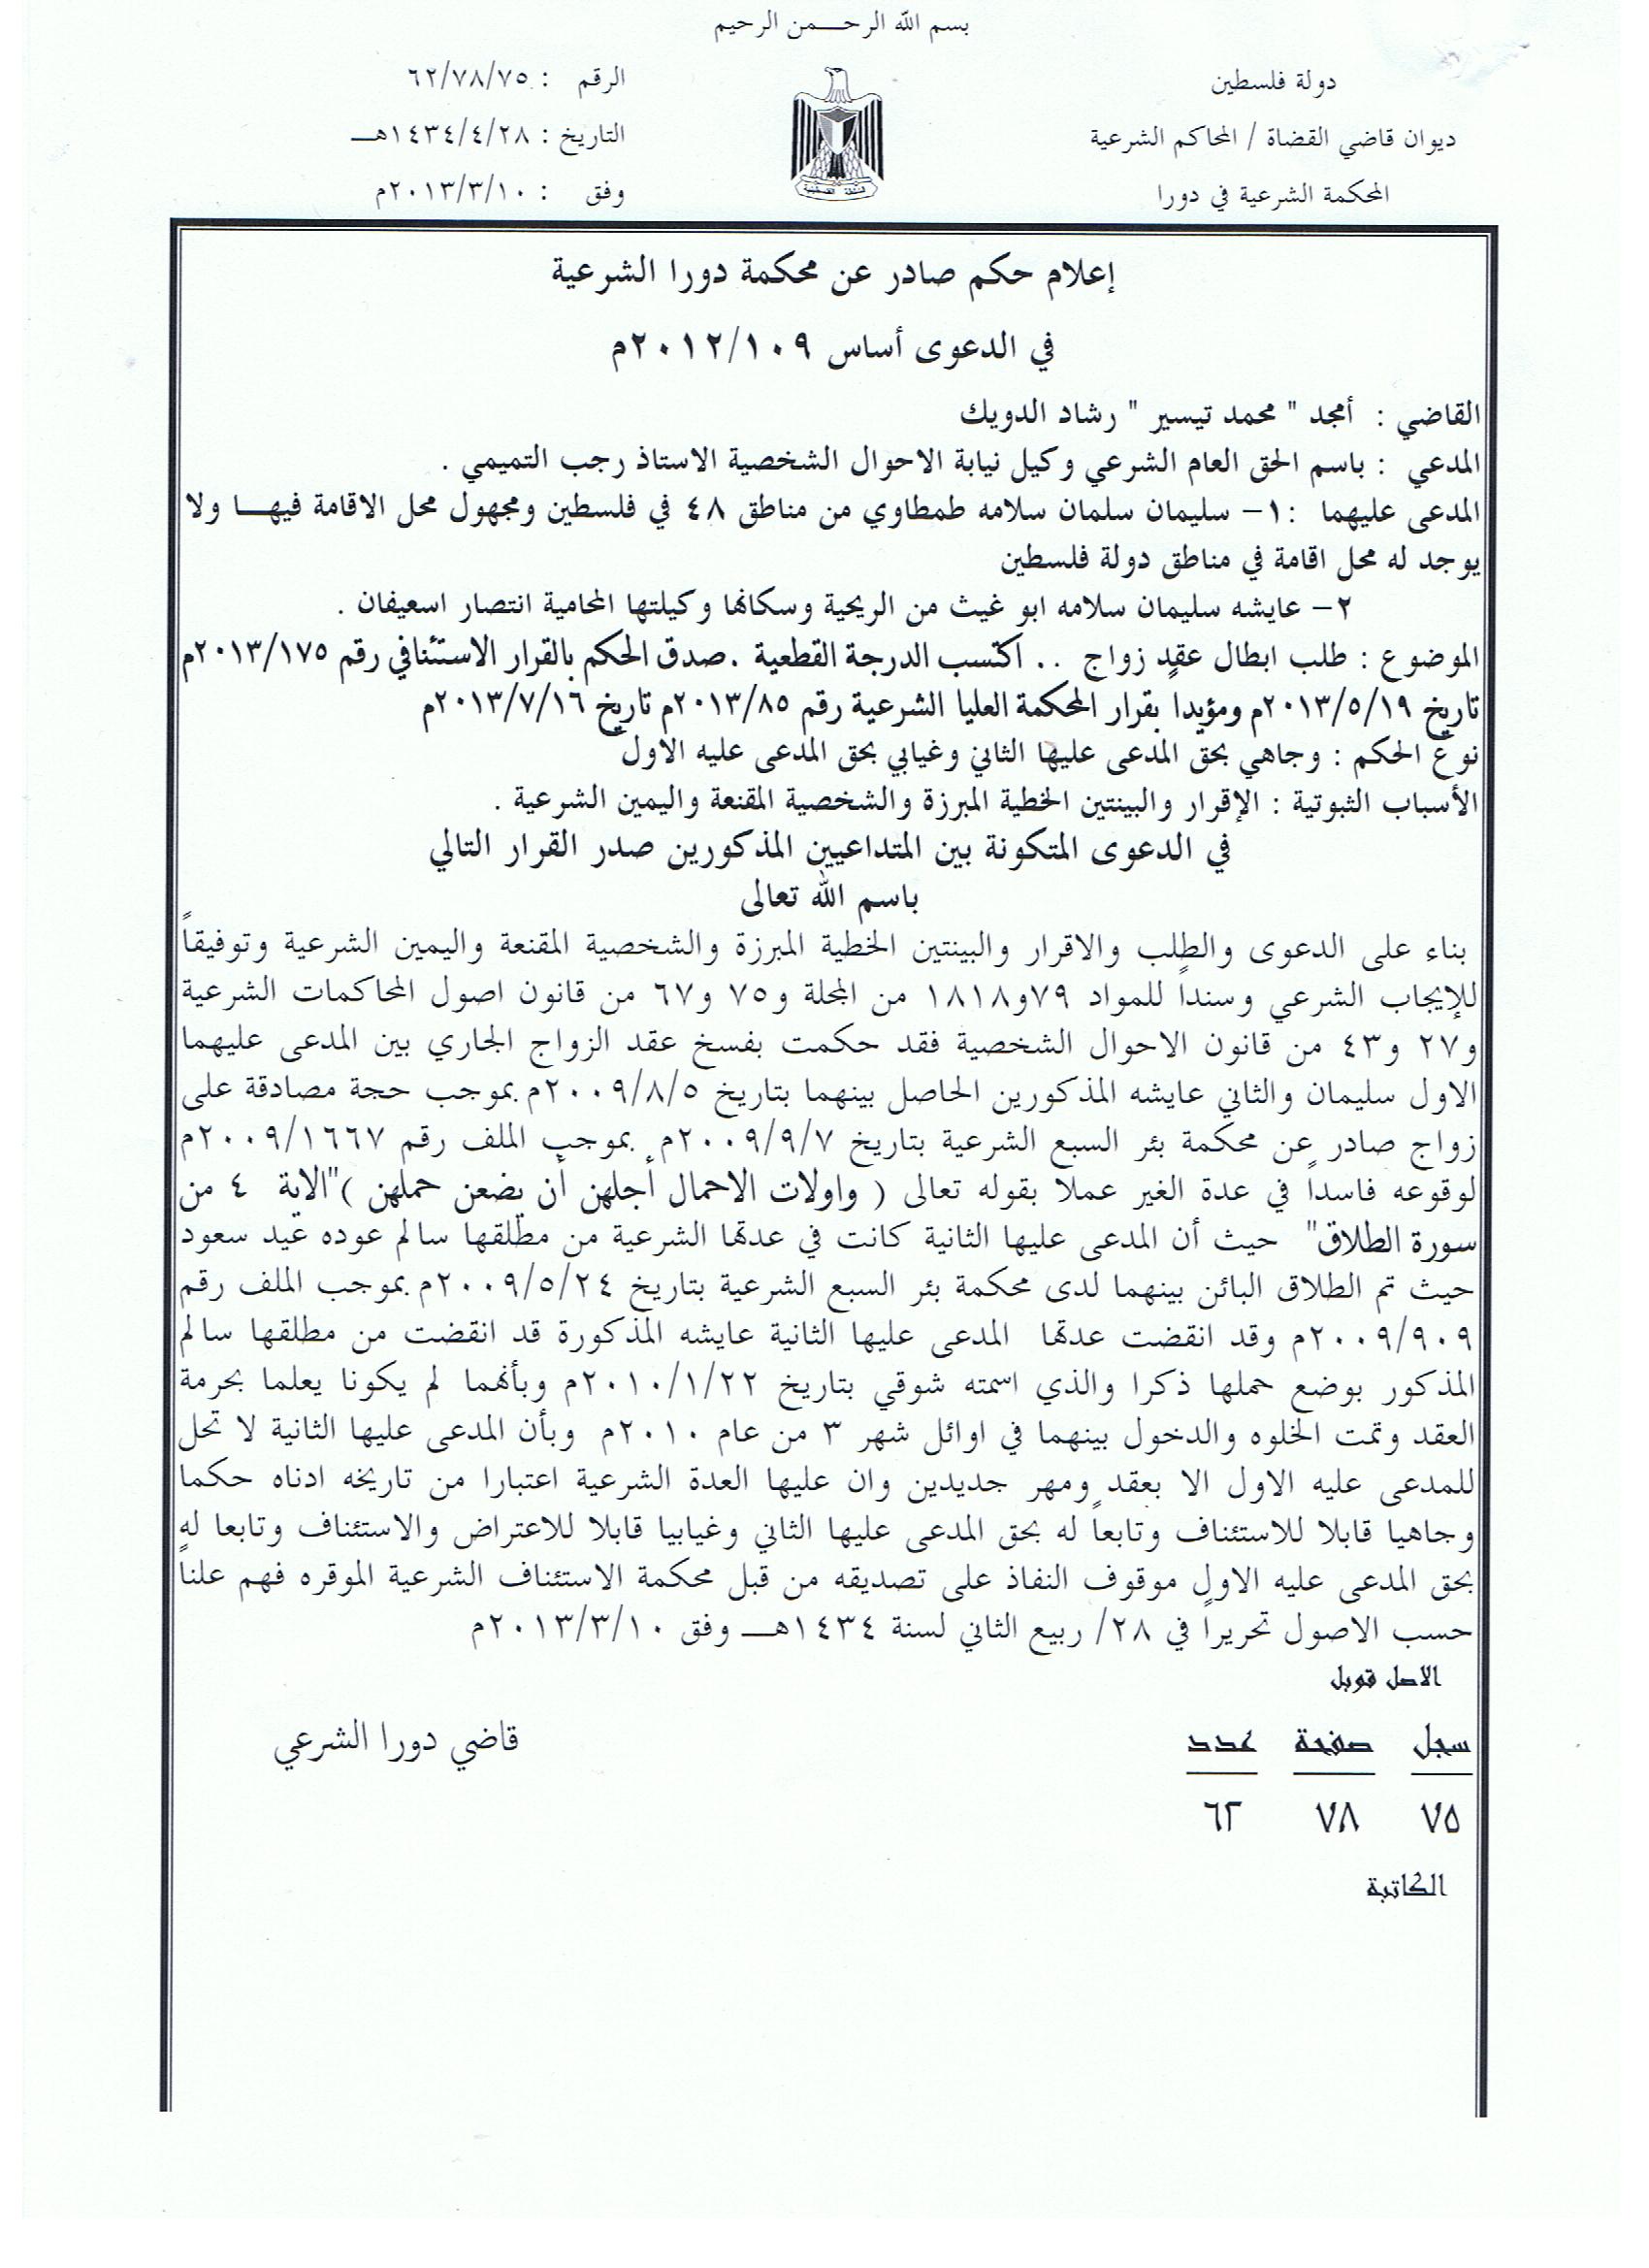 بسم الله الرحـــمن الرحيم
دولة فلسطين
ديوان قاضي القضاة / المحاكم الشرعية
المحكمة الشرعية في دورا
الرقم : ٦٢/٧٨/٧٥
التاريخ : ١٤٣٤/٤/٢٨هــ
وفق : ٢٠١٣/٣/١٠م
إعلام حكم صادر عن محكمة دورا الشرعية
في الدعوى أساس ٢٠١٢/١٠٩م
القاضي : أمجد " محمد تيسير " رشاد الدويك
المدعي : باسم الحق العام الشرعي وكيل نيابة الاحوال الشخصية الاستاذ رجب التميمي .
المدعى عليهما :١– سليمان سلمان سلامه طمطاوي من مناطق ٤٨ في فلسطين ومجهول محل الاقامة فيهـــا ولا
يوجد له محل اقامة في مناطق دولة فلسطين
٢– عايشه سليمان سلامه ابو غيث من الريحية وسكانها وكيلتها المحامية انتصار اسعيفان .
الموضوع : طلب ابطال عقدٍ زواج .. اكتسب الدرجة القطعية .صدق الحكم بالقرار الاستئنافي رقم ٢٠١٣/١٧٥م
تاريخ ٢٠١٣/٥/١٩م ومؤيداً بقرار المحكمة العليا الشرعية رقم ٢٠١٣/٨٥م تاريخ ٢٠١٣/٧/١٦م
نوع الحكم : وجاهي بحق المدعى عليها الثاني وغيابي بحق المدعى عليه الاول
الأسباب الثبوتية : الإقرار والبينتين الخطية المبرزة والشخصية المقنعة واليمين الشرعية .
في الدعوى المتكونة بين المتداعيين المذكورين صدر القرار التالي
باسم الله تعالى
بناء على الدعوى والطلب والاقرار والبينتين الخطية المبرزة والشخصية المقنعة واليمين الشرعية وتوفيقاً
للإيجاب الشرعي وسنداً للمواد ٧٩و١٨١٨ من المجلة و٧٥ و٦٧ من قانون اصول المحاكمات الشرعية
و٢٧ و٤٣ من قانون الاحوال الشخصية فقد حكمت بفسخ عقد الزواج الجاري بين المدعى عليهما
الاول سليمان والثاني عايشه المذكورين الحاصل بينهما بتاريخ ٢٠٠٩/٨/٥م بموجب حجة مصادقة على
زواج صادر عن محكمة بئر السبع الشرعية بتاريخ ٢٠٠٩/٩/٧م بموجب الملف رقم ٢٠٠٩/١٦٦٧م
لوقوعه فاسداً في عدة الغير عملا بقوله تعالى ( واولات الاحمال أجلهن أن يضعن حملهن )"الاية ٤ من
سورة الطلاق" حيث أن المدعى عليها الثانية كانت في عدتها الشرعية من مطلقها سالم عوده عيد سعود
حيث تم الطلاق البائن بينهما لدى محكمة بئر السبع الشرعية بتاريخ ٢٠٠٩/٥/٢٤م بموجب الملف رقم
٢٠٠٩/٩٠٩م وقد انقضت عدتها المدعى عليها الثانية عايشه المذكورة قد انقضت من مطلقها سالم
المذكور بوضع حملها ذكرا والذي اسمته شوقي بتاريخ ٢٠١٠/١/٢٢م وبأنهما لم يكونا يعلما بحرمة
العقد وتمت الخلوه والدخول بينهما في اوائل شهر ٣ من عام ٢٠١٠م وبأن المدعى عليها الثانية لا تحل
للمدعى عليه الاول الا بعقد ومهر جديدين وان عليها العدة الشرعية اعتبارا من تاريخه ادناه حكما
وجاهيا قابلا للاستئناف وتابعاً له بحق المدعى عليها الثاني وغيابيا قابلا للاعتراض والاستئناف وتابعا له
بحق المدعى عليه الاول موقوف النفاذ على تصديقه من قبل محكمة الاستئناف الشرعية الموقره فهم علناً
حسب الاصول تحريراً في ٢٨/ ربيع الثاني لسنة ١٤٣٤هــ وفق ٢٠١٣/٣/١٠م
الاصل قوبل
سجل صفحة عدد
٧٥ ٧٨ ٦٢
قاضي دورا الشرعي
الكاتبة